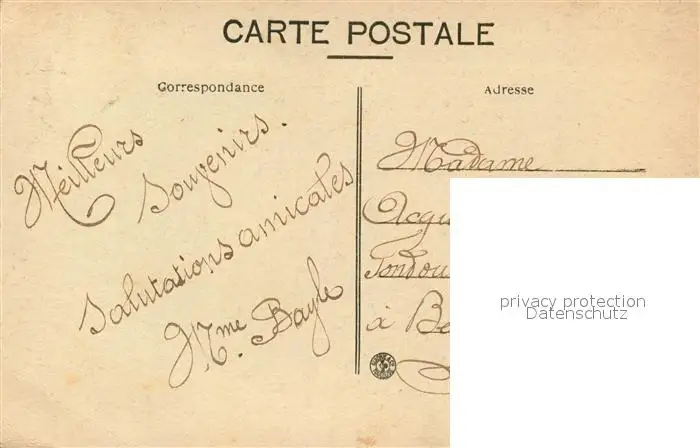 CARTE POSTALE
Correspondance
Meilleurs
Souvenirs.
Salutations amicales
Mme. Bayle
Adresse
Madame
à
privacy protection
Datenschutz